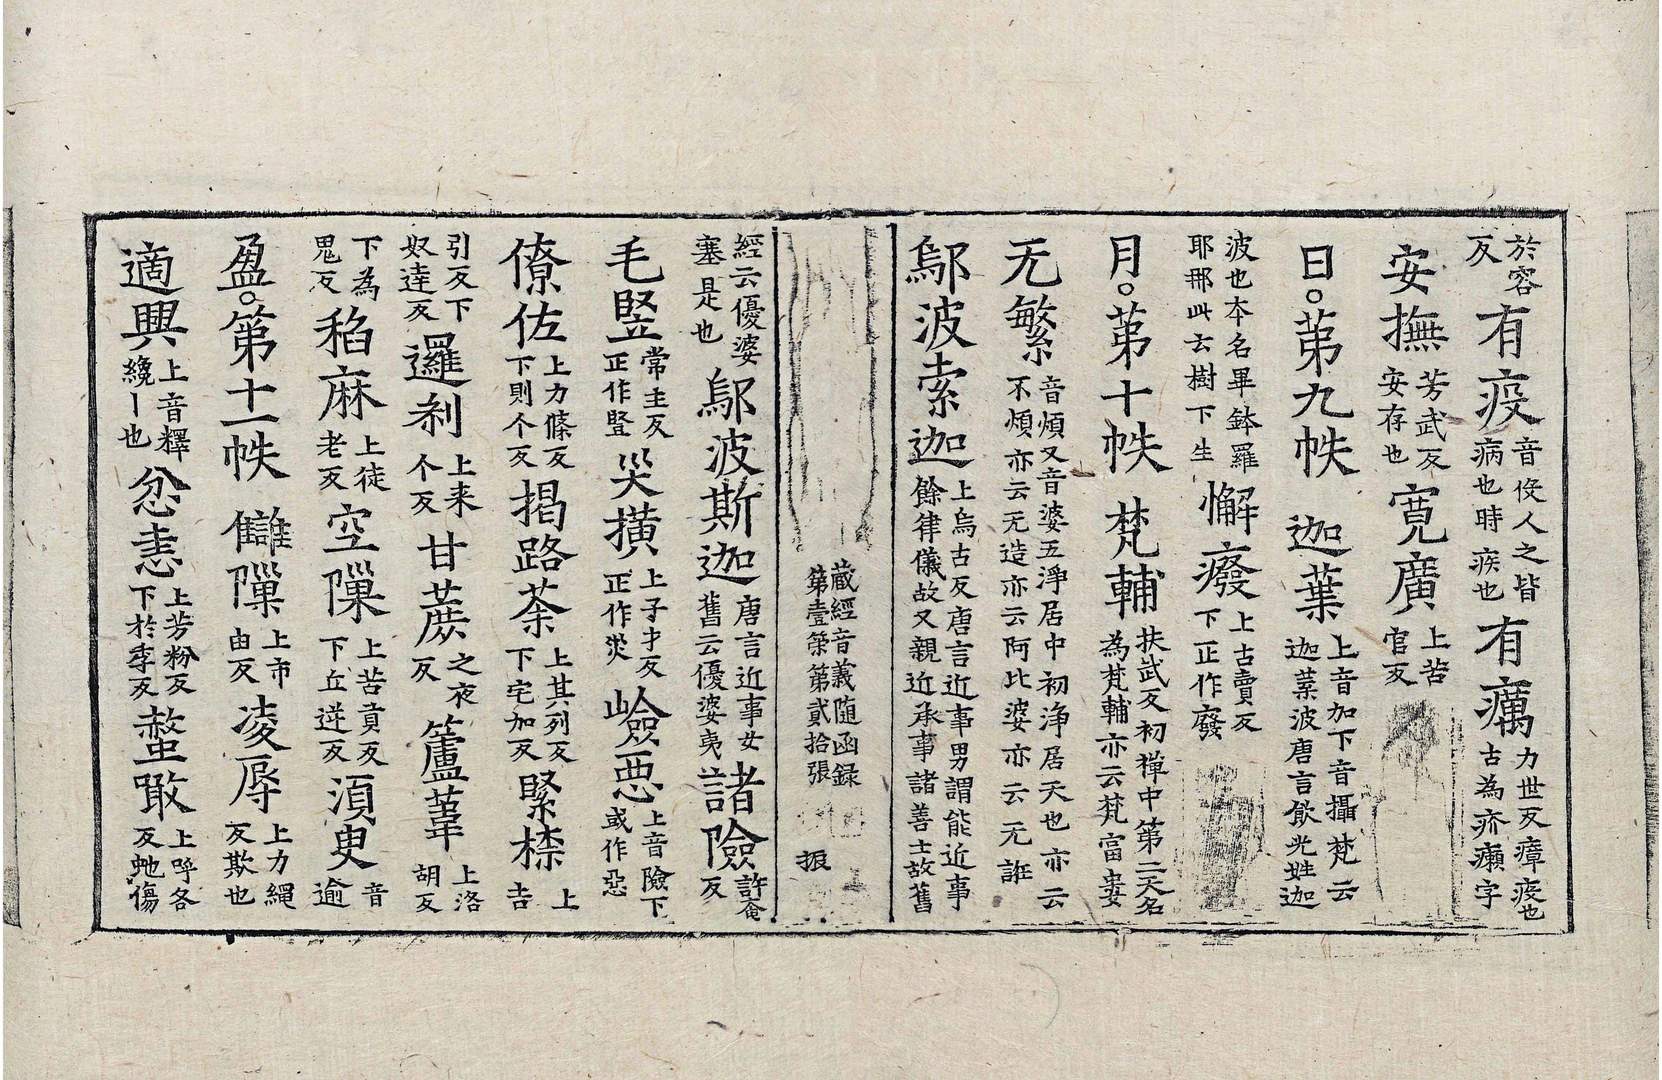 於容反有疫音伇人之皆病也時疾也有癘力世反瘴疫也古為疥癩字
安撫芳武反安存也寬廣上苦官反
日。苐九帙 迦葉上音加下音攝梵云迦葉波唐言飲光姓迦
波也本名畢鉢羅耶那此云樹下生懈癈上古賣反下正作廢
月。苐十帙 梵輔扶武反初禪中第二天名為梵輔亦云梵富婁
无繁音煩又音婆五淨居中初浄居天也亦云不煩亦云无造亦云阿比婆亦云无誑
鄔波索迦上烏古反唐言近事男謂能近事餘律儀故又親近承事諸善士故舊
藏經音義随函録
第壹第貳拾張 振
經云優婆塞是也鄔波斯迦唐言近事女舊云優婆夷諸險許奄反
毛竪常主反正作豎災橫上子才反正作灾嶮惡上音險下或作恶
僚佐上力條反下則个反揭路荼上其列反下宅加反緊㯹上吉
引反下奴逹反邏刹上来个反甘蔗之夜反籚葦上洛胡反
下為鬼反稻麻上徒老反空隟上苦貢反下丘逆反湏臾音逾
盈。第十一帙 讎隟上市由反凌辱上力繩反欺也
適興上音釋纔丨也忿恚上芳粉反下於季反螫噉上呼各反虵傷